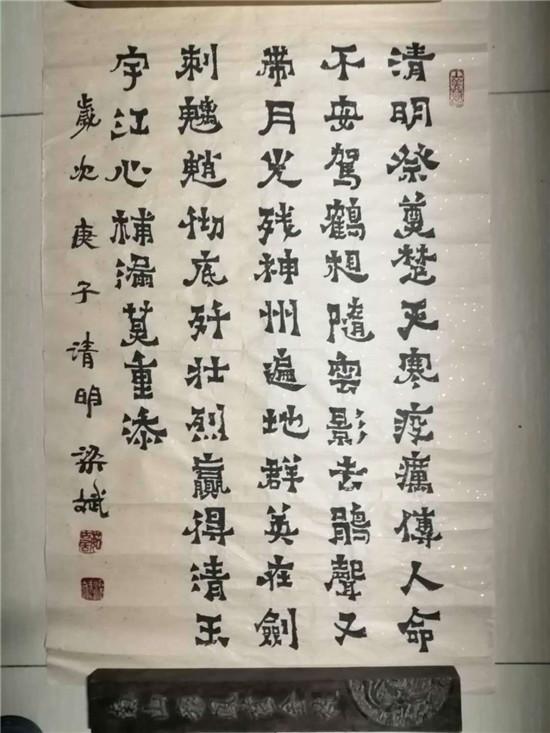 清明祭奠楚天寒疫癘傳人命
不安駕鶴相隨雲影去鵑聲又
帶月光残神州遍地群英在劍
刺魑魈彻底歼壮烈贏得清玉
宇江心補漏莫重添
歲次庚子清明梁斌